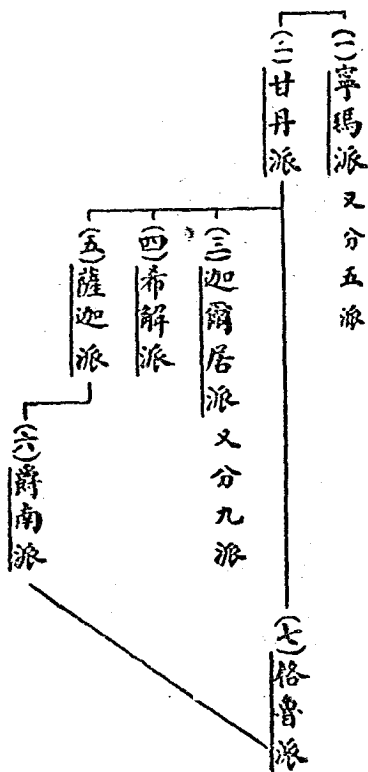 (一)寧瑪派 又分五派
(二)甘丹派
(三)迦爾居派 又分九派
(四)希解派
(五)薩迦派
(六)爵南派
(七)格魯派